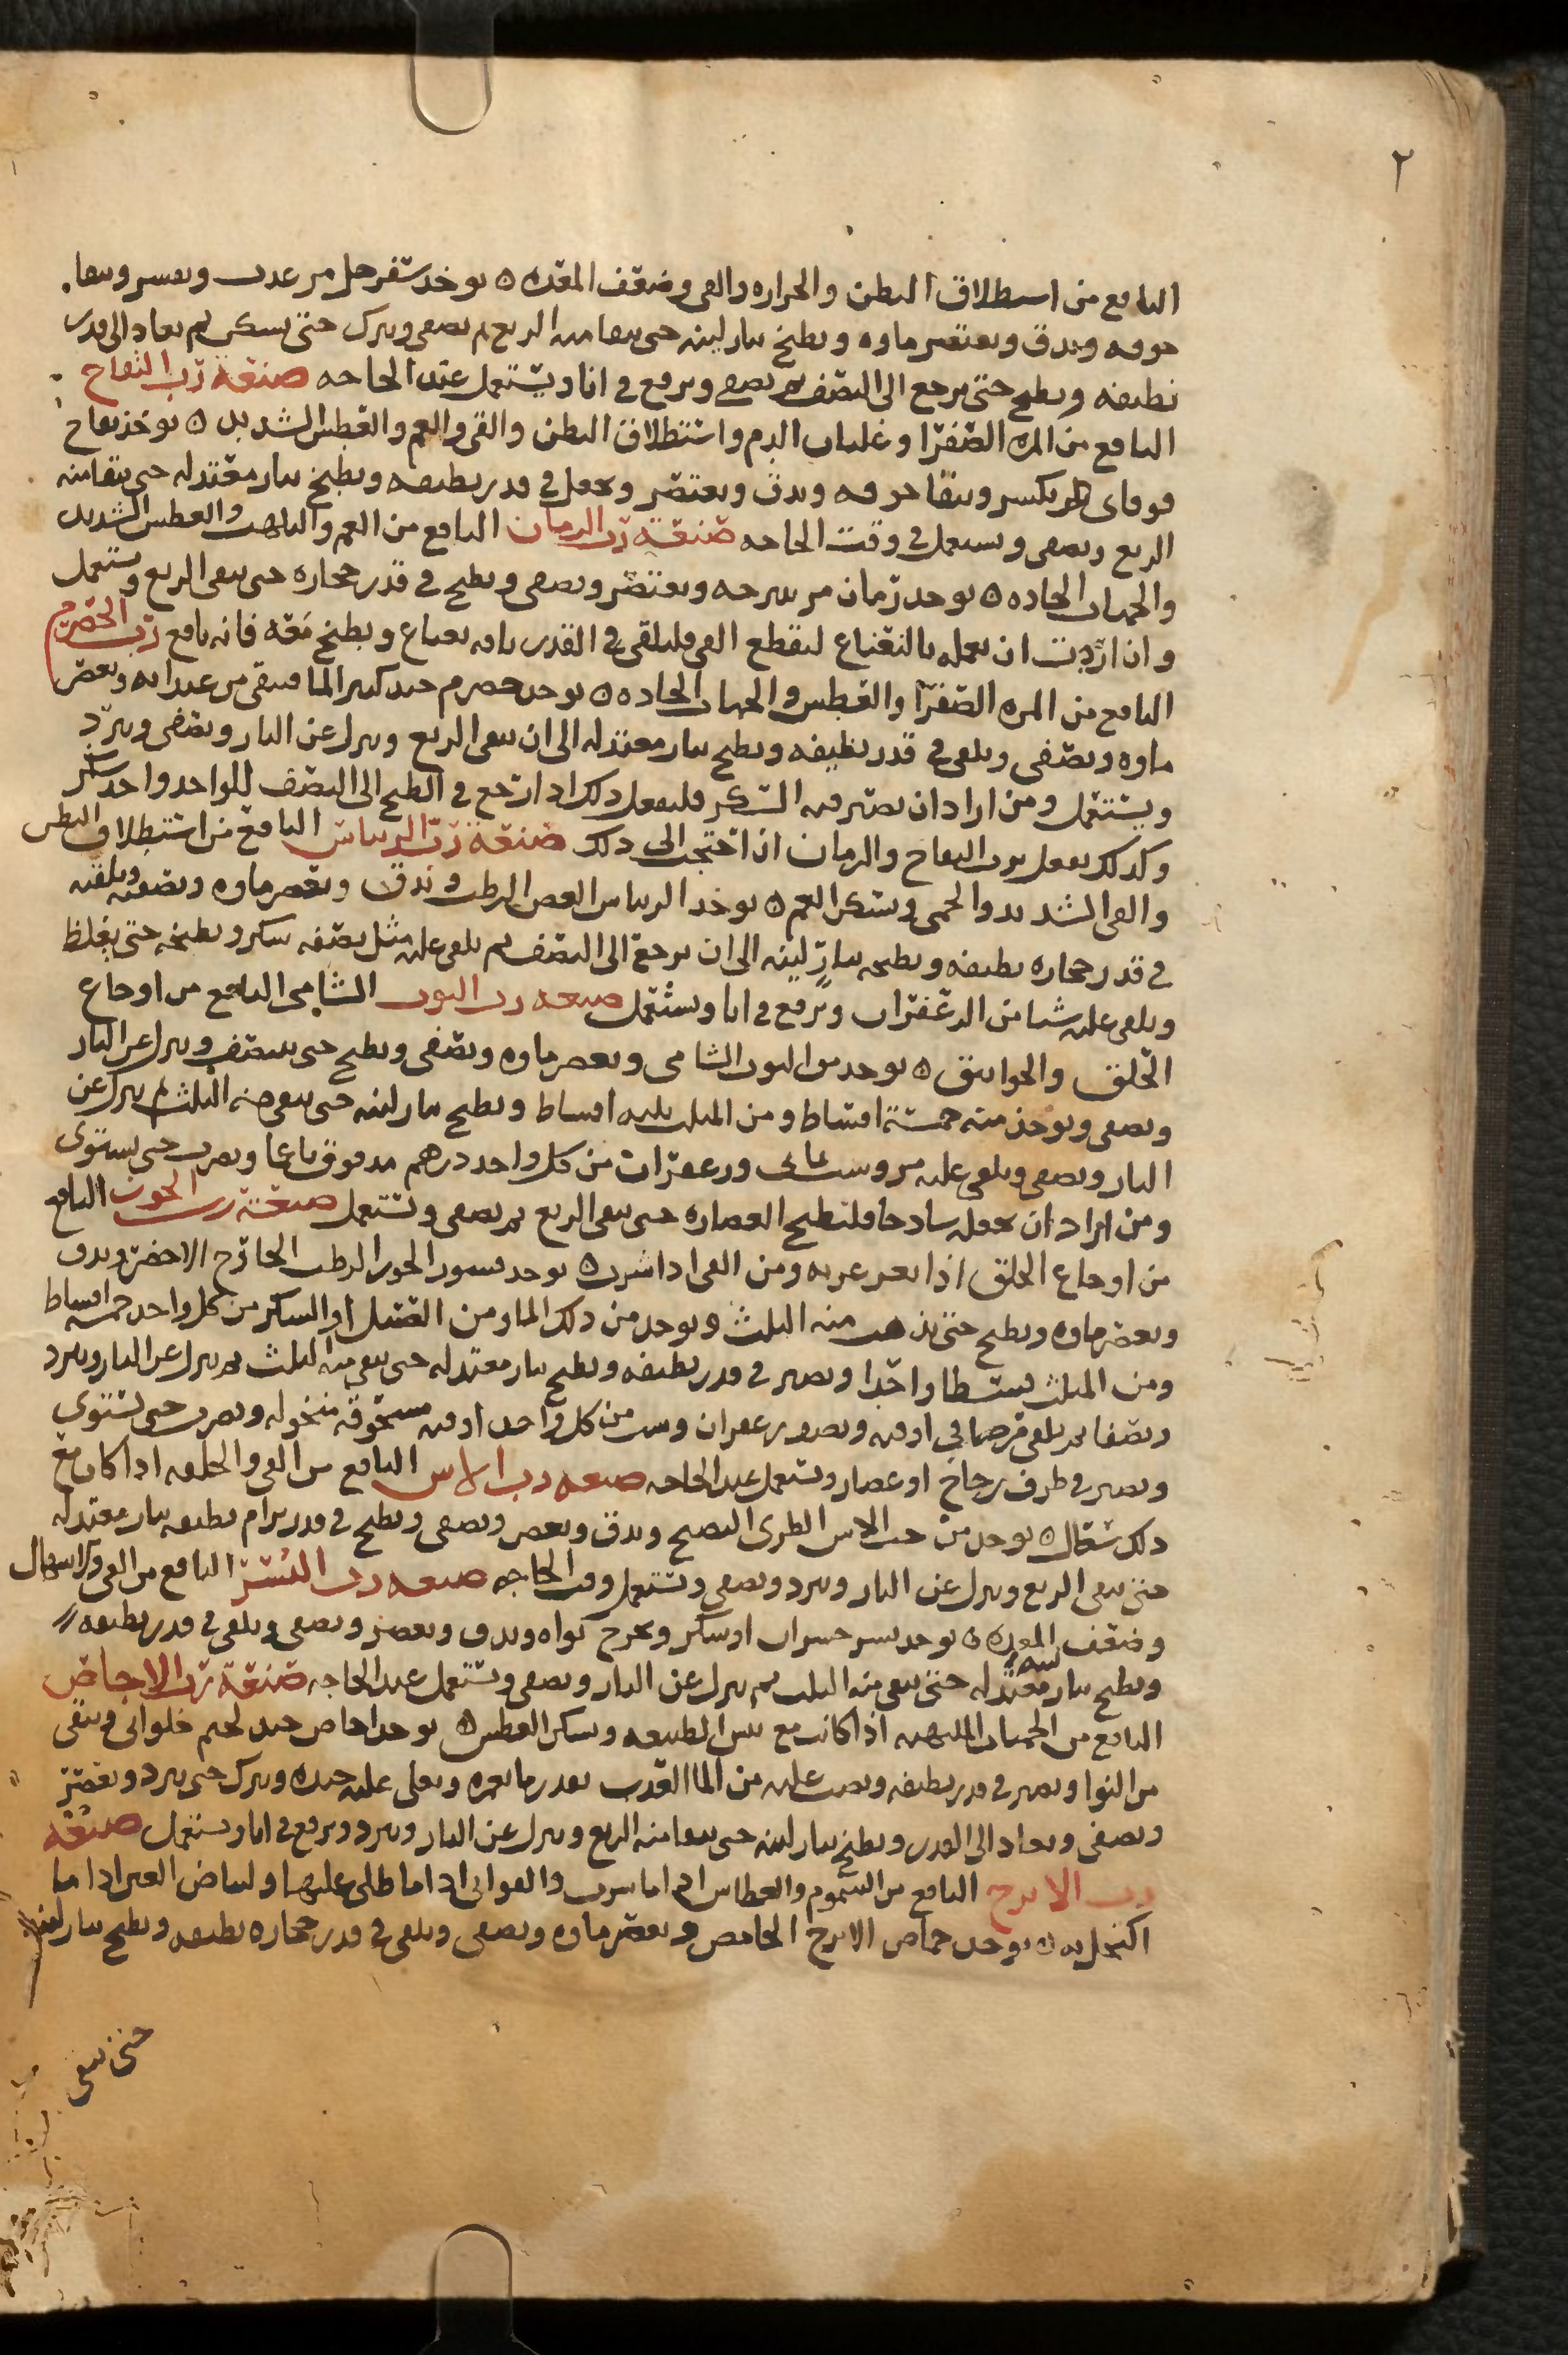 ٢
النافع من استطلاق البطن والحراره والقي وضعف المعده ٥ يوخذ سفرجل مز عذب ويقسر وينقا
جوفه ويدق ويعتصر ماوه ويطبخ بنار لينه حتى يبقا منه الربع ثم يصفى ويترك حتى يسكن ثم يعاد الى قدر
نظيفه ويطبخ حتى يرجع الى النصف ثم يصفى ويرفع في انا ويستعمل عند الحاجه صنعة رب التفاح
النافع من المره الصفرا وغليان الدم واستطلاق البطن والقي والغم والعطس الشديد ٥ يوخذ تفاح
فوقاى يكسر وينقا جوفه ويدق ويعتصر ويجعل في قدر نظيفه ويطبخ بنار معتدله حتى يبقا منه
الربع ويصفى ويستعمل في وقت الحاجه صنعة رب الرمان النافع من الغم والتلهب والعطس الشديد
والحميات الحاده ٥ يوخذ رمان مز بسرحه ويعتصر ويصفى ويطبخ في قدر حجاره حتى يبقى الربع ويستعمل
وان اردت ان تعمله بالنعناع لتقطع القي فليلقى في القدر باقه نعناع ويطبخ معه فانه نافع رب الحصرم
النافع من المره الصفرا والعطس والحميات الحاده ٥ يوخذ حصرم جيد كثير الما فينقى من عيدانه ويعصر
ماوه ويصفى ويلقى في قدر نظيفه ويطبخ بنار معتدله الى ان يبقى الربع وينزل عن النار ويصفى ويبرد
ويستعمل ومن اراد ان يصير فيه السكر فليفعل ذلك اذا رجع في الطبخ الى النصف للواحد واحد سكر
وكذلك يفعل برب التفاح والرمان اذا احتجت الى ذلك صنعة رب الريباس النافع من استطلاق البطن
والقي الشديد والحمى ويسكن الغم ٥ يوخذ الريباس الغض الرطب ويدق ويعصر ماوه ويصفيه ويلقيه
في قدر حجاره نظيفه ويطبخه بنار لينه الى ان يرجع الى النصف ثم يلقى عليه مثل نصفه سكر ويطبخه حتى يغلظ
ويلقى عليه شيا من الزعفران ويرفع في انا ويستعمل صنعه رب التوت الشامي النافع من اوجاع
الحلق والخوانيق ٥ يوخذ من التوت الشامى ويعصر ماوه ويصفى ويطبخ حتى ينتصف وينزل عن النار
ويصفى ويوخذ منه خمسة اقساط ومن المثلث ثلثه اقساط ويطبخ بنار لينه حتى يبقى منه الثلث ثم ينزل عن
النار ويصفى ويلقى عليه مر وسب يمانى وزعفران من كل واحد درهم مدقوق ناعما ويضرب حتى يستوى
ومن اراد ان يجعله ساذجا فليطبخ العصاره حتى يبقى الربع ثم يصفى ويستعمل صنعة رب الجوز النافع
من اوجاع الحلق اذا تغرغر به ومن القي اذا شرب ٥ يوخذ قسور الجوز الرطب الخارج الاخضر ويدق
ويعصر ماوه ويطبخ حتى يذهب منه الثلث ويوخذ من ذلك الما ومن العسل او السكر من كل واحد خمسه اقساط
ومن المثلث قسطا واحدا ويصير في قدر نظيفه ويطبخ بنار معتدله حتى يبقى منه الثلث ثم ينزل عن النار ويبرد
ويصفا ثم يلقى اوقيه زعفران وسب من كل واحد اوقيه مسحوقه منخوله ويضرب حتى يستوى
ويصير في ظرف زجاج او غضار ويستعمل عند الحاجه صنعه رب الاس النافع من القي والخلفه اذا كان مع
ذلك سعال ٥ يوخذ من حب الاس الطرى النضيج ويدق ويعصر ويصفى ويطبخ في قدر برام نظيفه بنار معتدله
حتى يبقى الربع وينزل عن النار ويبرد ويصفى ويستعمل وقت الحاجه صنعه رب البسر النافع من القي والاسهال
وضعف المعده ٥ يوخذ بسر جيسران او سكر ويخرج نواه ويدق ويعصر ويصفى ويلقى في قدر نظيفه
ويطبخ بنار معتدله حتى يبقى منه الثلث ثم ينزل عن النار ويصفى ويستعمل عند الحاجه صنعة رب الاجاص
النافع من الحميات الملتهبه اذا كانت مع يبس الطبيعه ويسكن العطس ٥ يوخذ اجاص جيد لحيم حلوانى وينقى
من النوا ويصير في قدر نظيفه ويصب عليه من الما العذب بقدر ما يغمره ويغلى عليه جيده ويترك حتى يبرد ويعصر
ويصفى ويعاد الى القدر ويطبخ بنار لينه حتى يبقا منه الربع وينزل عن النار ويبرد ويرفع في انا ويستعمل صنعه
رب الاترج النافع من السموم والعطاس اذا ما شرب والقوابى اذا ما طلى عليها ولبياض العين اذا ما
اكتحل به ٥ يوخذ حماض الاترج الحامض ويعصر ماوه ويصفى ويلقى في قدر حجاره نظيفه ويطبخ بنار لينه
حتى يبقى